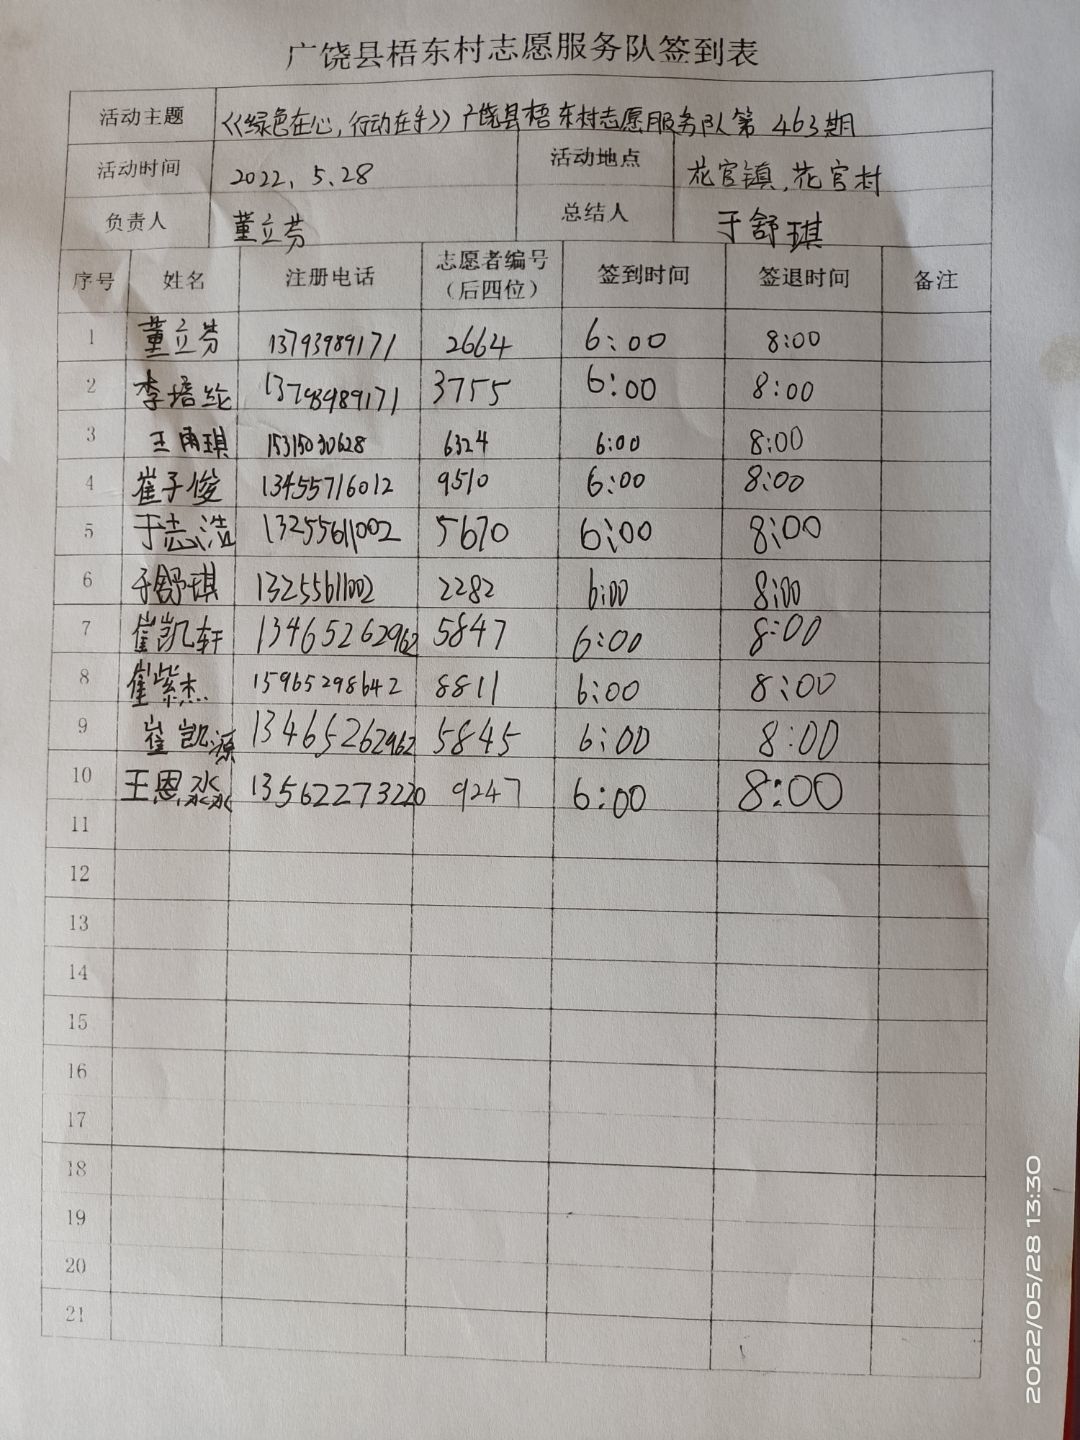 广饶县梧东村志愿服务队签到表
活动主题 《绿色在心,行动在手》广饶县梧东村志愿服务队第463期
活动时间 2022.5.28 活动地点 花官镇,花官村
负责人 董立芬 总结人 于舒琪
序号 姓名 注册电话 志愿者编号(后四位) 签到时间 签退时间 备注
1 董立芬 13793989171 2664 6:00 8:00
2 李培纶 13793989171 3755 6:00 8:00
3 王雨琪 15315030628 6324 6:00 8:00
4 崔子俊 13455716012 9510 6:00 8:00
5 于志浩 13255611002 5670 6:00 8:00
6 于舒琪 13255611002 2282 6:00 8:00
7 崔凯轩 13465262962 5847 6:00 8:00
8 崔紫杰 15965298642 8811 6:00 8:00
9 崔凯源 13465262962 5845 6:00 8:00
10 王恩淼 13562273220 9247 6:00 8:00
11
12
13
14
15
16
17
18
19
20
21
2022/05/28 13:30